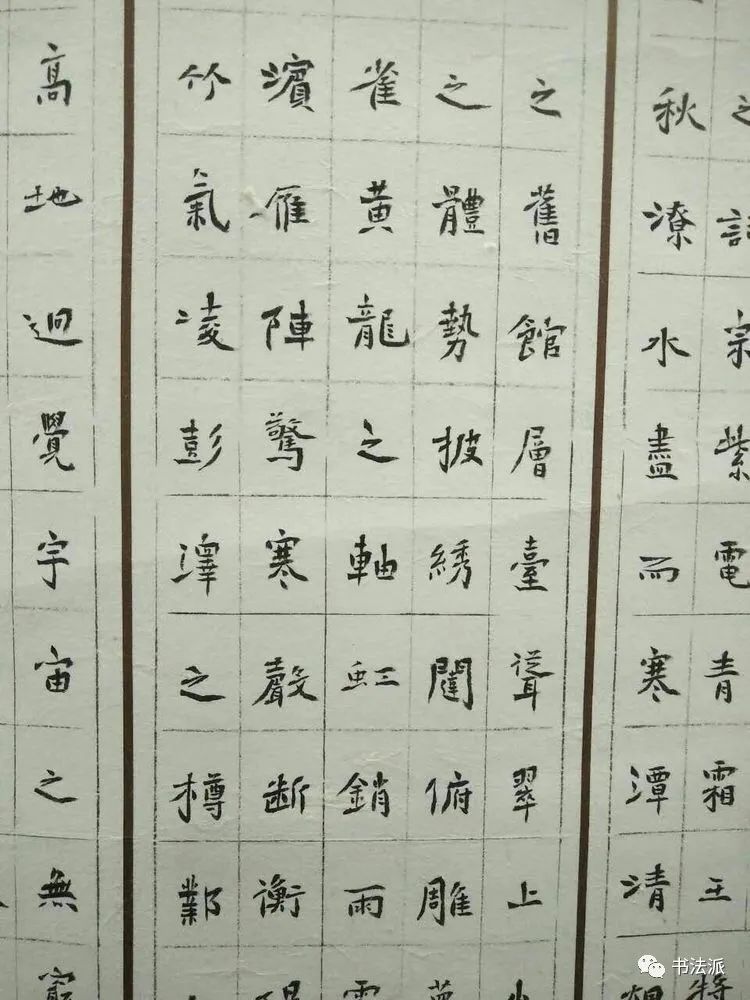 之詞宗紫電青霜王將
秋潦水盡而寒潭清
之舊館層臺聳翠上
之體勢披綉闥俯雕
雀黄龍之軸虹銷雨
濱雁陣驚寒聲断衡
竹氣凌彭澤之樽鄴
高地迥覺宇宙之無窮
书法派